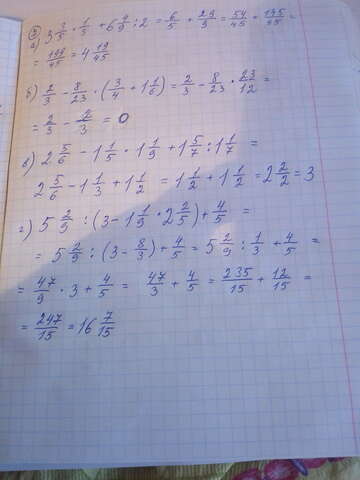 ③
а) 3 3/5 · 1/3 + 6 4/9 : 2 = 6/5 + 29/9 = 54/45 + 145/45 =
= 199/45 = 4 19/45
б) 2/3 - 8/23 · (3/4 + 1 1/6) = 2/3 - 8/23 · 23/12 =
= 2/3 - 2/3 = 0
в) 2 5/6 - 1 1/5 · 1 1/9 + 1 5/7 : 1 1/7 =
2 5/6 - 1 1/3 + 1 1/2 = 1 1/2 + 1 1/2 = 2 2/2 = 3
г) 5 2/9 : (3 - 1 1/9 · 2 2/5) + 4/5 =
= 5 2/9 : (3 - 8/3) + 4/5 = 5 2/9 : 1/3 + 4/5 =
= 47/9 · 3 + 4/5 = 47/3 + 4/5 = 235/15 + 12/15 =
= 247/15 = 16 7/15